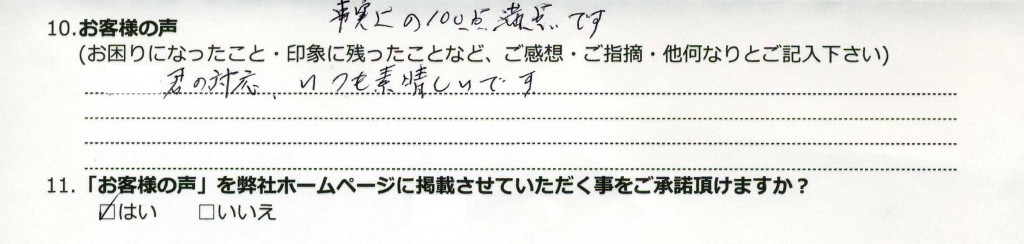 事実上の100点満点です
10. お客様の声
(お困りになったこと・印象に残ったことなど、ご感想・ご指摘・他何なりとご記入下さい)
君の対応、いつも素晴しいです
11.「お客様の声」を弊社ホームページに掲載させていただく事をご承諾頂けますか？
☑はい □いいえ